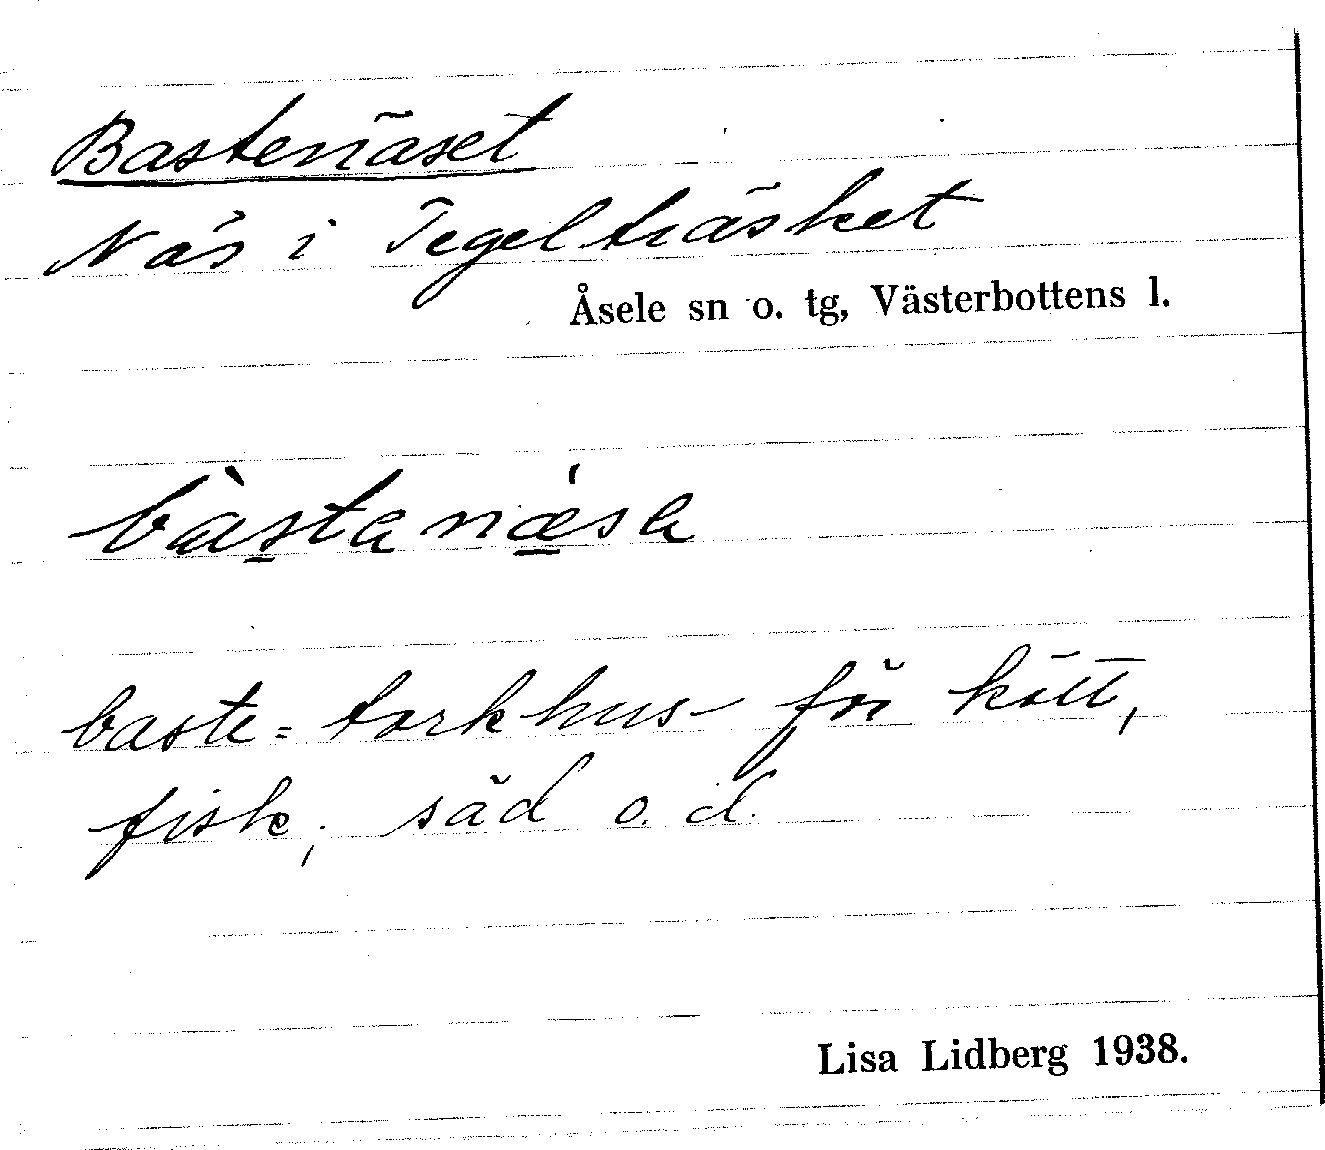 Bastenäset
Näs i Tegelträsket
Åsele sn o. tg, Västerbottens l.
bàstanǽsa
baste = torkhus för kött,
fisk, säd o.d.
Lisa Lidberg 1938.